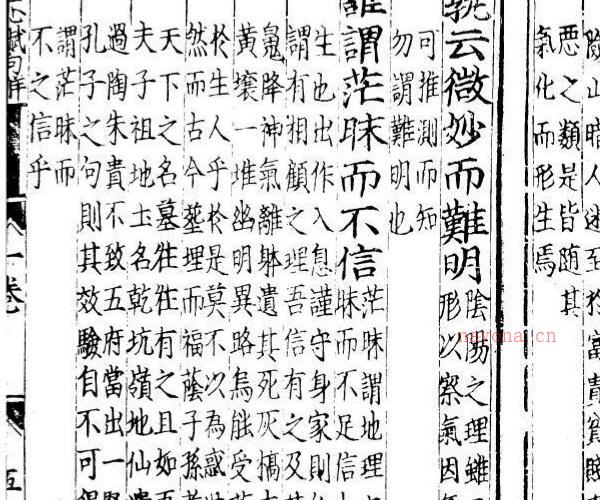 險山暗人迷至於富貴貧賤
惡之類是皆随其
氣化而形生焉
孰云微妙而難明
陰陽之理雖
形以察氣因
可推測而知
勿謂難明也
誰謂茫昧而不信
茫昧謂地理
昧而不足信
生也出作入息謹守身家則
謂有相顧之理吾信有之及其
鬼降神氣離躰遺其死灰槁
黄壤一堆幽明異路烏能受
於生人乎於是莫不以為惑
然而古今塟埋而福蔭子孫
天下之名墓徃徃有之且如
夫子祖地土名乾坑嶺地仙
過陶朱貴不致五府當出一
孔子之句則其效驗自不可
謂茫昧而
不之信乎
心賦句解
一卷
五
nayona.cn